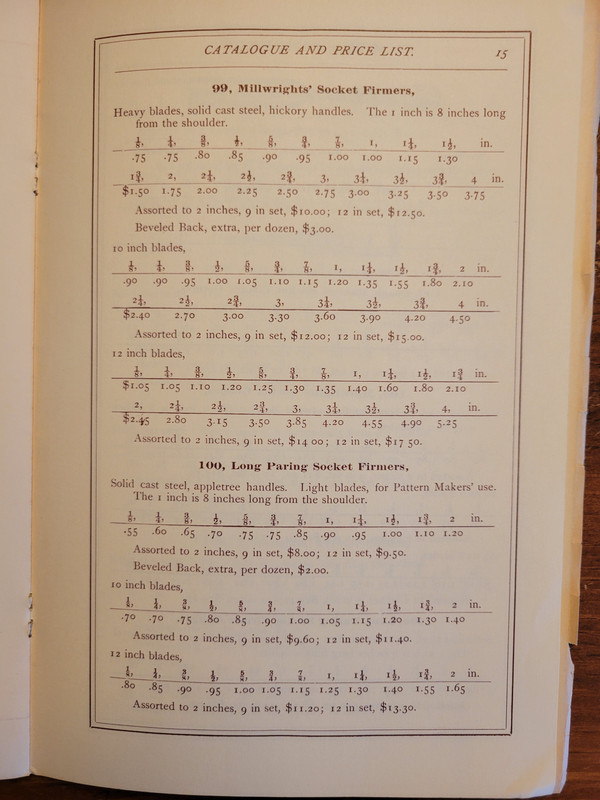 CATALOGUE AND PRICE LIST. 15
99, Millwrights' Socket Firmers,
Heavy blades, solid cast steel, hickory handles. The 1 inch is 8 inches long
from the shoulder.
⅛, ¼, ⅜, ½, ⅝, ¾, ⅞, 1, 1¼, 1½, in.
.75 .75 .80 .85 .90 .95 1.00 1.00 1.15 1.30
1¾, 2, 2¼, 2½, 2¾, 3, 3¼, 3½, 3¾, 4 in.
$1.50 1.75 2.00 2.25 2.50 2.75 3.00 3.25 3.50 3.75
Assorted to 2 inches, 9 in set, $10.00; 12 in set, $12.50.
Beveled Back, extra, per dozen, $3.00.
10 inch blades,
⅛, ¼, ⅜, ½, ⅝, ¾, ⅞, 1, 1¼, 1½, 1¾, 2 in.
.90 .90 .95 1.00 1.05 1.10 1.15 1.20 1.35 1.55 1.80 2.10
2¼, 2½, 2¾, 3, 3¼, 3½, 3¾, 4 in.
$2.40 2.70 3.00 3.30 3.60 3.90 4.20 4.50
Assorted to 2 inches, 9 in set, $12.00; 12 in set, $15.00.
12 inch blades,
⅛, ¼, ⅜, ½, ⅝, ¾, ⅞, 1, 1¼, 1½, 1¾ in.
$1.05 1.05 1.10 1.20 1.25 1.30 1.35 1.40 1.60 1.80 2.10
2, 2¼, 2½, 2¾, 3, 3¼, 3½, 3¾, 4, in.
$2.45 2.80 3.15 3.50 3.85 4.20 4.55 4.90 5.25
Assorted to 2 inches, 9 in set, $14 00; 12 in set, $17 50.
100, Long Paring Socket Firmers,
Solid cast steel, appletree handles. Light blades, for Pattern Makers' use.
The 1 inch is 8 inches long from the shoulder.
⅛, ¼, ⅜, ½, ⅝, ¾, ⅞, 1, 1¼, 1½, 1¾, 2 in.
.55 .60 .65 .70 .75 .75 .85 .90 .95 1.00 1.10 1.20
Assorted to 2 inches, 9 in set, $8.00; 12 in set, $9.50.
Beveled Back, extra, per dozen, $2.00.
10 inch blades,
⅛, ¼, ⅜, ½, ⅝, ¾, ⅞, 1, 1¼, 1½, 1¾, 2 in.
.70 .70 .75 .80 .85 .90 1.00 1.05 1.15 1.20 1.30 1.40
Assorted to 2 inches, 9 in set, $9.60; 12 in set, $11.40.
12 inch blades,
⅛, ¼, ⅜, ½, ⅝, ¾, ⅞, 1, 1¼, 1½, 1¾, 2 in.
.80 .85 .90 .95 1.00 1.05 1.15 1.25 1.30 1.40 1.55 1.65
Assorted to 2 inches, 9 in set, $11.20; 12 in set, $13.30.